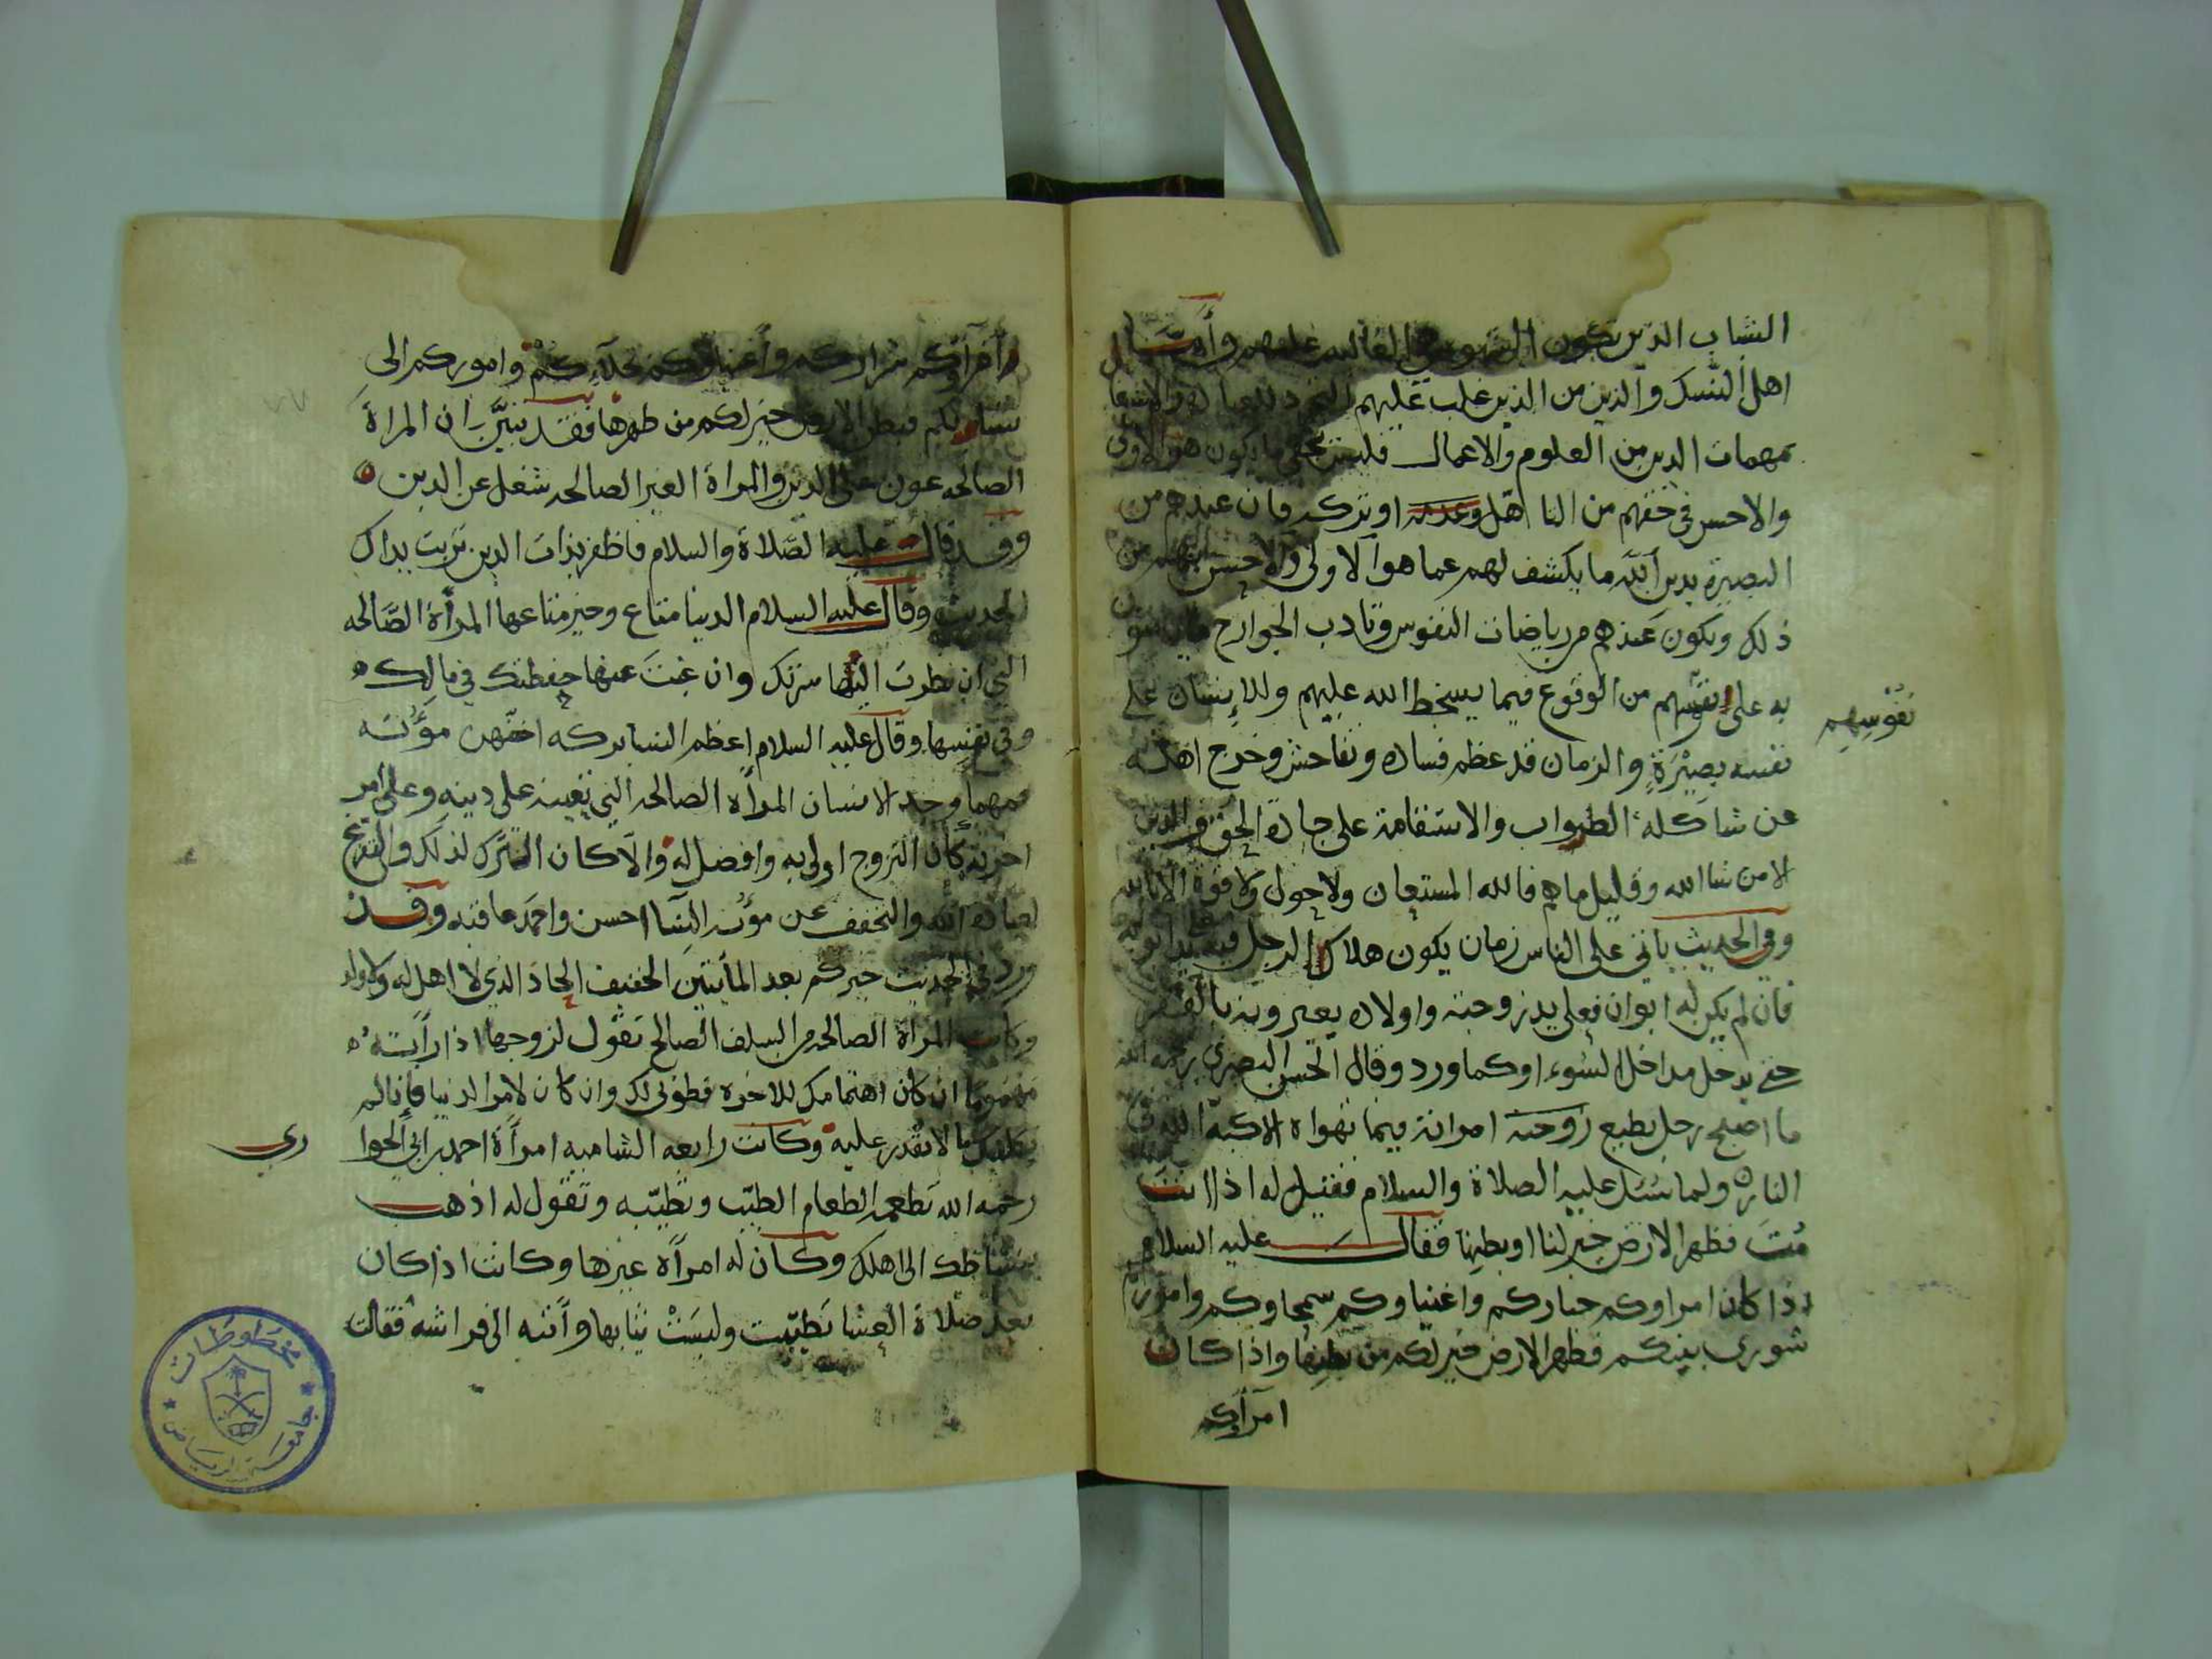 الشاب الذين تكون الشهوه هي الغالبه عليهم وأما
اهل النسك والدين من الذين غلب عليهم التجرد للعباده والاشتغال
بمهمات الدين من العلوم والاعمال فليس يخفى ما يكون هو الاولى
والاحسن في حقهم من التاهل وعدمه او تركه فان عندهم من
البصيرة بدين الله ما يكشف لهم عما هو الاولى والاحسن لهم من
ذلك ويكون عندهم من رياضات النفوس وتادب الجوارح ما
به على نفسهم من الوقوع فيما يسخط الله عليهم وللانسان على
نفوسهم
نفسه بصيرة والزمان قد عظم فساده وتفاحش وخرج اهله
عن شاكلة الصواب والاستقامة على جادة الحق والدين
الا من شا الله وقليل ما هم فالله المستعان ولا حول ولا قوة الا بالله
وفي الحديث ياتي على الناس زمان يكون هلاك الرجل فيه على يد ابويه
فان لم يكن له ابوان فعلى يد زوجته واولاده يعيرونه بالفقر
حتى يدخل مداخل السوء او كما ورد وقال الحسن البصري رحمه الله
ما اصبح رجل يطيع زوجته امراته فيما تهواه الا كبه الله في
النار ولما سئل عليه الصلاة والسلام فقيل له اذا انت
مت فظهر الارض خير لنا او بطنها فقال عليه السلام
اذا كان امراوكم خياركم واغنياوكم سمحاوكم واموركم
شورى بينكم فظهر الارض خير لكم من بطنها واذا كان
امرآوكم
امرآؤكم شراركم وأغنياؤكم بخلاءكم واموركم الى
نسائكم فبطن الارض خير لكم من ظهرها فقد تبيّن ان المراة
الصالحه عون على الدين والمراة الغير الصالحه شغل عن الدين
وقد قال عليه الصّلاة والسلام فاظفر بذات الدين تربت يداك
الحديث وقال عليه السلام الدنيا متاع وخير متاعها المرأة الصّالحه
التي ان نظرت اليها سرتك وان غبت عنها حفظتك في مالك
وفي نفسها وقال عليه السلام اعظم النسا بركه اخفّهن مؤنه
فمهما وجد الانسان المرأة الصالحه التي تعينه على دينه وعلى امر
اخرته كان التزوج اولى به وافضل له والا كان الترك لذلك والتفرغ
لعبادة الله والتخفف عن مؤنه النسا احسن واحمد عاقبه وقد
ورد في الحديث خيركم بعد المأيتين الخفيف الحاذ الذي لا اهل له ولا ولد
وكانت المراة الصالحه من السلف الصالح تقول لزوجها اذا رأته
مغموما ان كان اهتمامك للاخره فطوبى لك وان كان لامر الدنيا فإنا لم
نكلفك ما لا تقدر عليه وكانت رابعه الشاميه امرأة احمد بن ابي الحوا
ري
رحمه الله تطعمه الطعام الطيّب وتطيّبه وتقول له اذهب
بنشاطك الى اهلك وكان له امرأة غيرها وكانت اذا كان
بعد صلاة العشا تطيّبت ولبست ثيابها وأتته الى فراشه فقالت
مخطوطات
جامعة الرياض